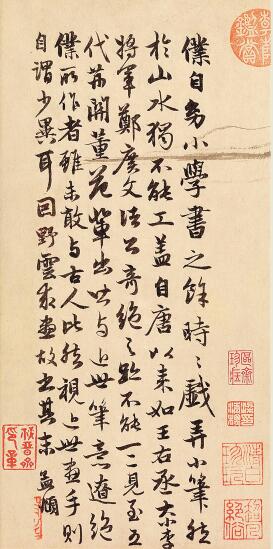 僕自幼小學書之餘時々戲弄小筆然
於山水獨不能工蓋自唐以來如王右丞大小李
將軍鄭廣文諸公奇絕之跡不能一二見至五
代荊關董范輩出皆與近世筆意遼絕
僕所作者雖未敢與古人比然視近世畫手則
自謂少異耳因野雲求畫故書其末孟頫
乾隆鑑賞